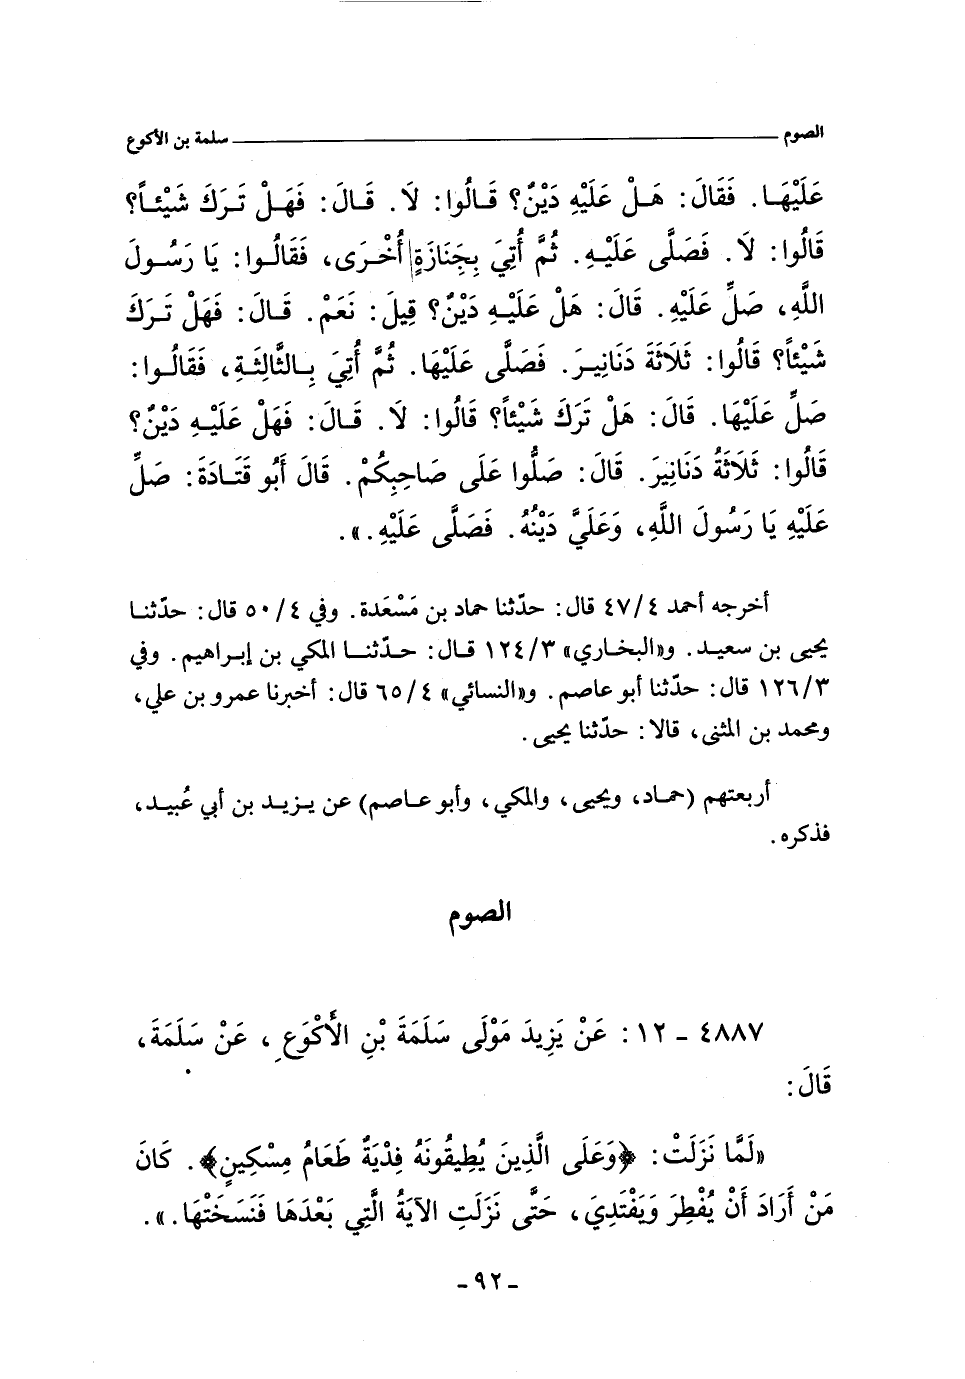 الصوم ـــــــ سلمة بن الأكوع
عَلَيْهَا. فَقَالَ: هَلْ عَلَيْهِ دَيْنٌ؟ قَالُوا: لَا. قَالَ: فَهَلْ تَرَكَ شَيْئاً؟
قَالُوا: لَا. فَصَلَّى عَلَيْهِ. ثُمَّ أُتِيَ بِجَنَازَةٍ أُخْرَى، فَقَالُوا: يَا رَسُولَ
اللَّهِ، صَلِّ عَلَيْهِ. قَالَ: هَلْ عَلَيْهِ دَيْنٌ؟ قِيلَ: نَعَمْ. قَالَ: فَهَلْ تَرَكَ
شَيْئاً؟ قَالُوا: ثَلَاثَةَ دَنَانِيرَ. فَصَلَّى عَلَيْهَا. ثُمَّ أُتِيَ بِالثَّالِثَةِ، فَقَالُوا:
صَلِّ عَلَيْهَا. قَالَ: هَلْ تَرَكَ شَيْئاً؟ قَالُوا: لَا. قَالَ: فَهَلْ عَلَيْهِ دَيْنٌ؟
قَالُوا: ثَلَاثَةُ دَنَانِيرَ. قَالَ: صَلُّوا عَلَى صَاحِبِكُمْ. قَالَ أَبُو قَتَادَةَ: صَلِّ
عَلَيْهِ يَا رَسُولَ اللَّهِ، وَعَلَيَّ دَيْنُهُ. فَصَلَّى عَلَيْهِ.».
أخرجه أحمد ٤/٤٧ قال: حدّثنا حماد بن مَسْعَدة. وفي ٤/٥٠ قال: حدّثنا
يحيى بن سعيد. و«البخاري» ٣/١٢٤ قال: حدّثنا المكي بن إبراهيم. وفي
٣/١٢٦ قال: حدّثنا أبو عاصم. و«النسائي» ٤/٦٥ قال: أخبرنا عمرو بن علي،
ومحمد بن المثنى، قالا: حدّثنا يحيى.
أربعتهم (حماد، ويحيى، والمكي، وأبو عاصم) عن يزيد بن أبي عُبيد،
فذكره.
الصوم
٤٨٨٧ - ١٢: عَنْ يَزِيدَ مَوْلَى سَلَمَةَ بْنِ الأَكْوَعِ، عَنْ سَلَمَةَ،
قَالَ:
«لَمَّا نَزَلَتْ: ﴿وَعَلَى الَّذِينَ يُطِيقُونَهُ فِدْيَةٌ طَعَامُ مِسْكِينٍ﴾. كَانَ
مَنْ أَرَادَ أَنْ يُفْطِرَ وَيَفْتَدِيَ، حَتَّى نَزَلَتِ الآيَةُ الَّتِي بَعْدَهَا فَنَسَخَتْهَا.».
- ٩٢ -